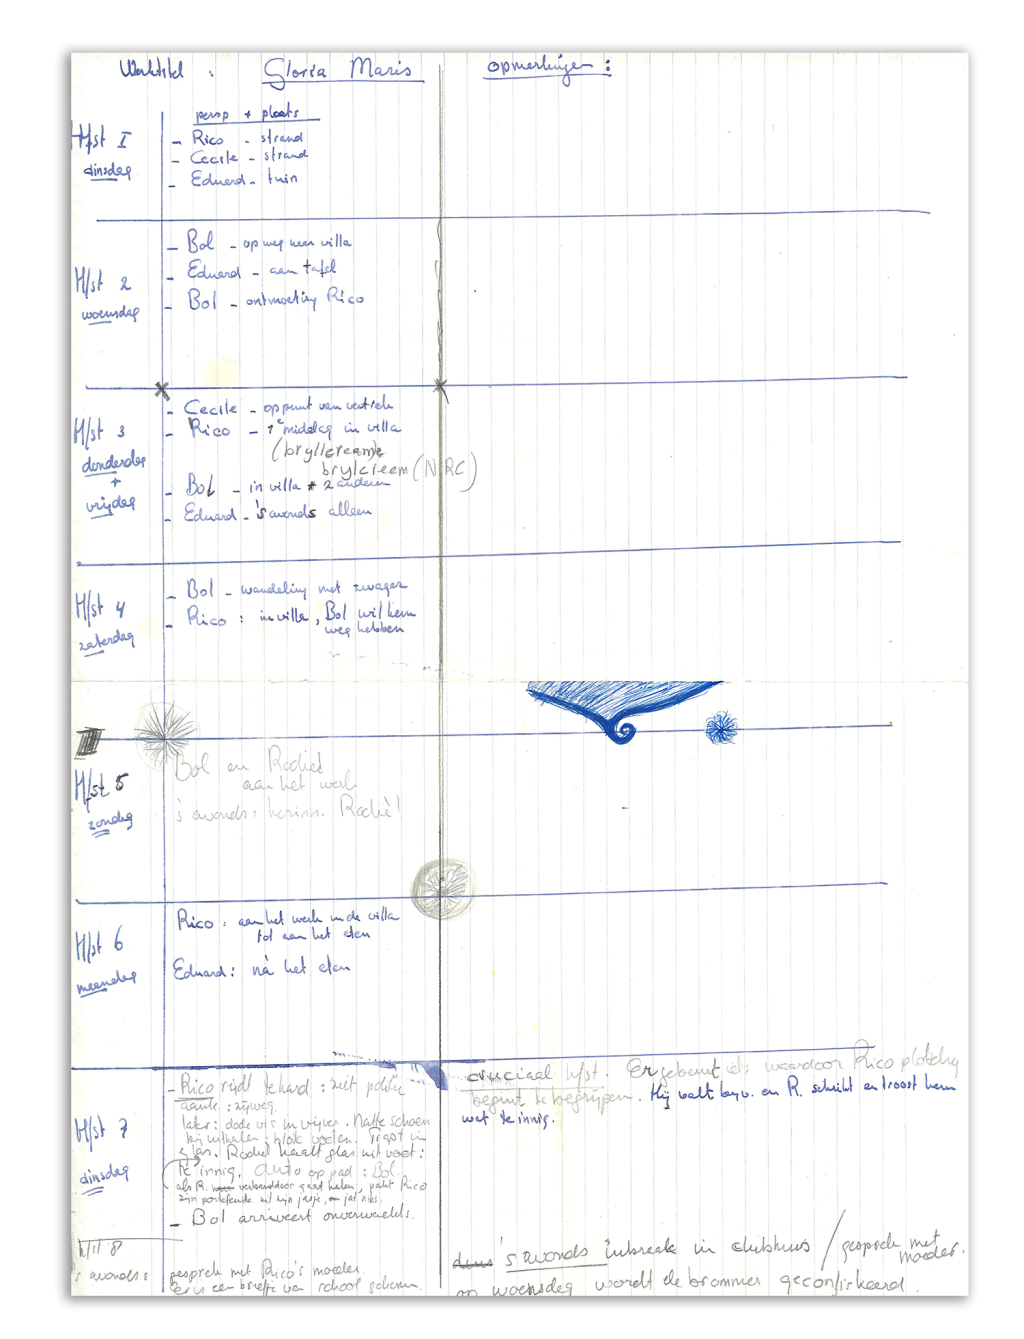 Werktitel : Gloria Maris
opmerkingen :
persp + plaats
H/st I
dinsdag
- Rico - strand
- Cecile - strand
- Eduard - tuin
H/st 2
woensdag
- Bol - op weg naar villa
- Eduard - aan tafel
- Bol - ontmoeting Rico
H/st 3
donderdag
+
vrijdag
- Cecile - op punt van vertrek
- Rico - 1e middag in villa
(bryllcreame
brylcreem (NRC)
- Bol - in villa * 2 anderen
- Eduard - 's avonds alleen
H/st 4
zaterdag
- Bol - wandeling met zwager
- Rico : in villa, Bol wil hem
weg hebben
H/st 5
zondag
Bol en Rochel
aan het werk
's avonds : herinn. Rochel
H/st 6
maandag
Rico : aan het werk in de villa
tot aan het eten
Eduard : nà het eten
H/st 7
dinsdag
- Rico rijdt te hard : ziet politie
aank : zijweg.
later : dode vis in vijver. Natte schoen
bij uithalen : blote voeten. Trapt in
glas. Rochel haalt glas uit voet :
te innig. auto op pad : Bol.
als R. verbanddoos gaat halen, pakt Rico
zijn portefeuille uit zijn jasje,
- Bol arriveert onverwachts.
cruciaal h/st. Er gebeurt iets waardoor Rico plotseling
begint te begrijpen. Hij valt bijv. en R. schrikt en troost hem
wat te innig.
h/st 8
's avonds :
gesprek met Rico's moeder.
er is een briefje van school gekomen.
's avonds inbraak in clubhuis / gesprek met
moeder.
op woensdag wordt de brommer geconfiskeerd.